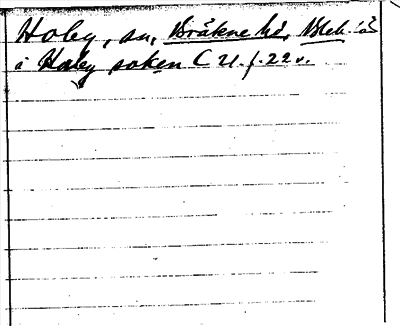 Hoby, sn, Bråkne hd, Blek. lä
i Hoby soken C 21. f. 22 v.